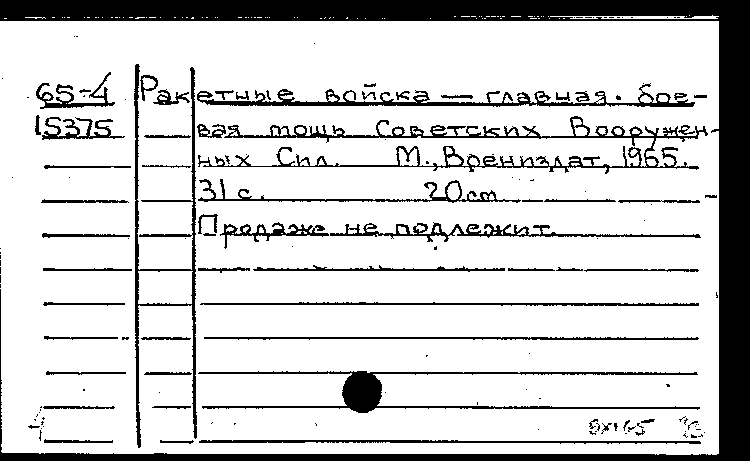 65-4 Ракетные войска — главная бое-
15375 вая мощь Советских Вооружен-
ных Сил. М., Воениздат, 1965.
31 с. 20 см
Продаже не подлежит.